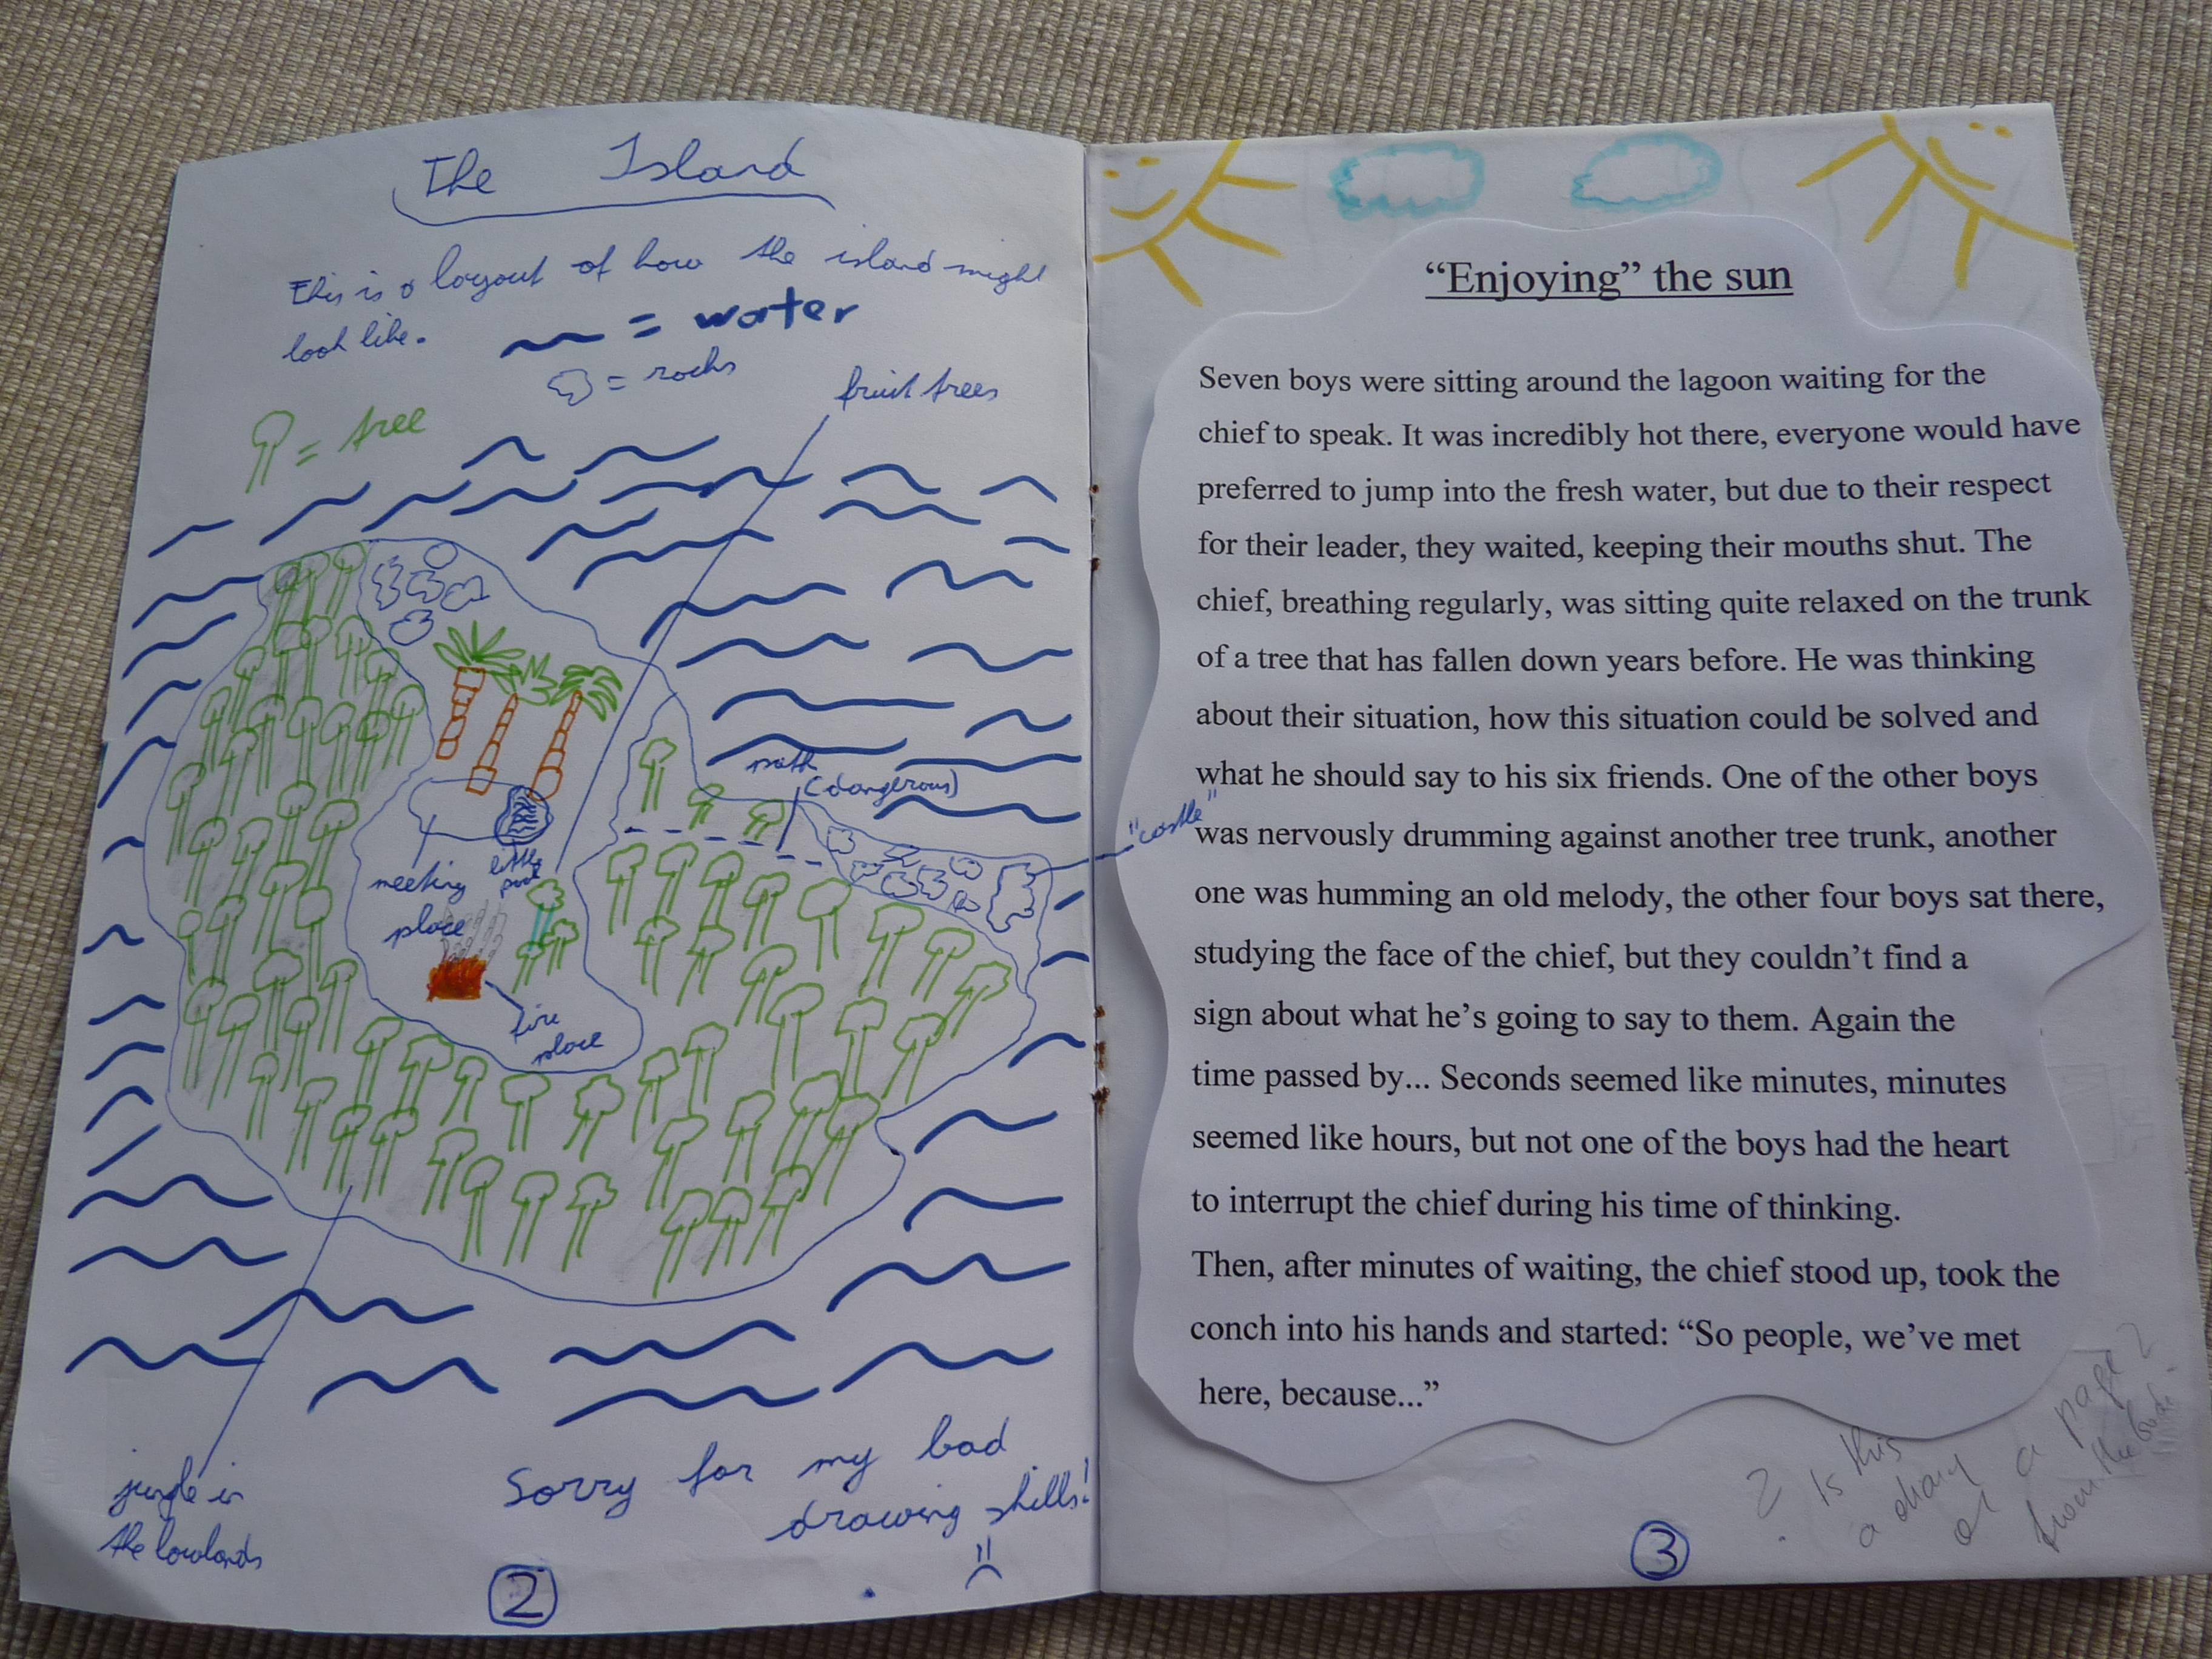 The Island
This is a layout of how the island might
look like.
= water
= rocks
fruit trees
= tree
path
(dangerous)
"castle"
meeting
place
little
pool
fire
place
jungle in
the lowlands
Sorry for my bad
drawing skills!
2
“Enjoying” the sun
Seven boys were sitting around the lagoon waiting for the
chief to speak. It was incredibly hot there, everyone would have
preferred to jump into the fresh water, but due to their respect
for their leader, they waited, keeping their mouths shut. The
chief, breathing regularly, was sitting quite relaxed on the trunk
of a tree that has fallen down years before. He was thinking
about their situation, how this situation could be solved and
what he should say to his six friends. One of the other boys
was nervously drumming against another tree trunk, another
one was humming an old melody, the other four boys sat there,
studying the face of the chief, but they couldn’t find a
sign about what he’s going to say to them. Again the
time passed by... Seconds seemed like minutes, minutes
seemed like hours, but not one of the boys had the heart
to interrupt the chief during his time of thinking.
Then, after minutes of waiting, the chief stood up, took the
conch into his hands and started: “So people, we’ve met
here, because...”
? Is this
a diary
or a page
from the book?
3